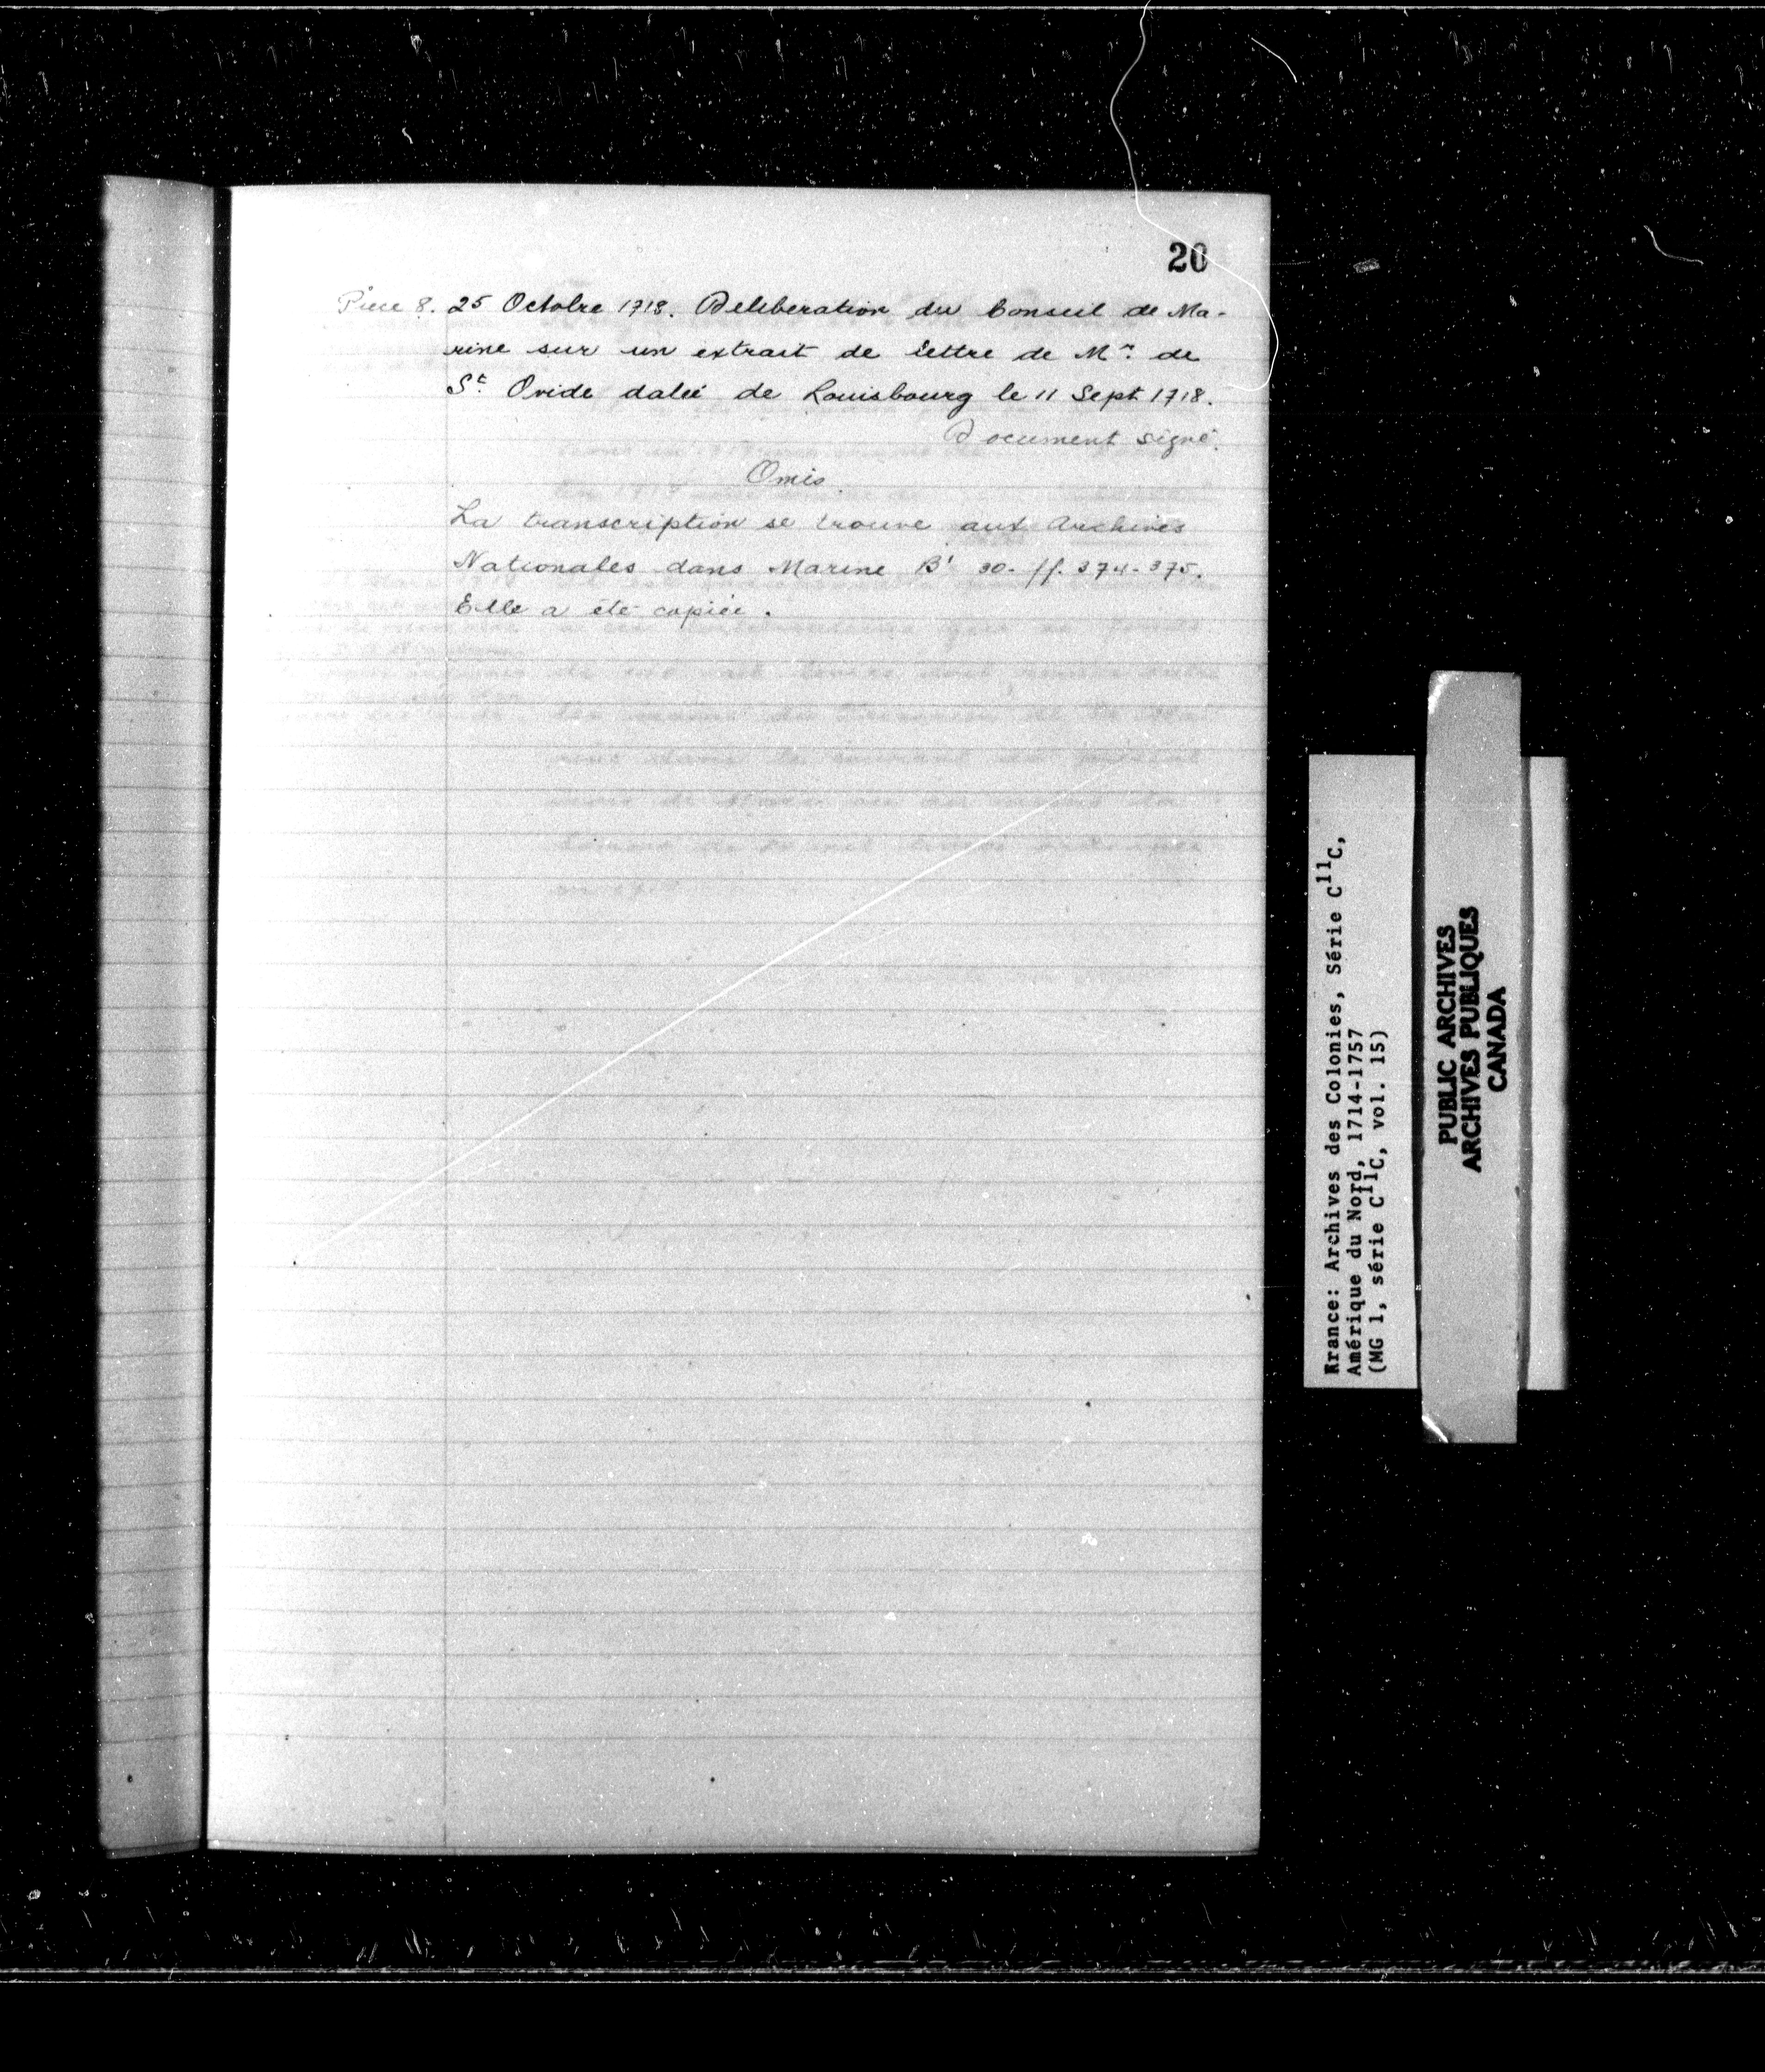 20
Piece 8. 25 Octobre 1718. Deliberation du Conseil de Ma-
rine sur un extrait de lettre de Mr. de
St. Ovide datée de Louisbourg le 11 Sept. 1718.
Document signé.
Omis.
La transcription se trouve aux Archives
Nationales dans Marine B1 30. ff. 374-375.
Elle a été copiée.
Rrance: Archives des Colonies, Série C11C,
Amérique du Nord, 1714-1757
(MG 1, série C11C, vol. 15)
PUBLIC ARCHIVES
ARCHIVES PUBLIQUES
CANADA